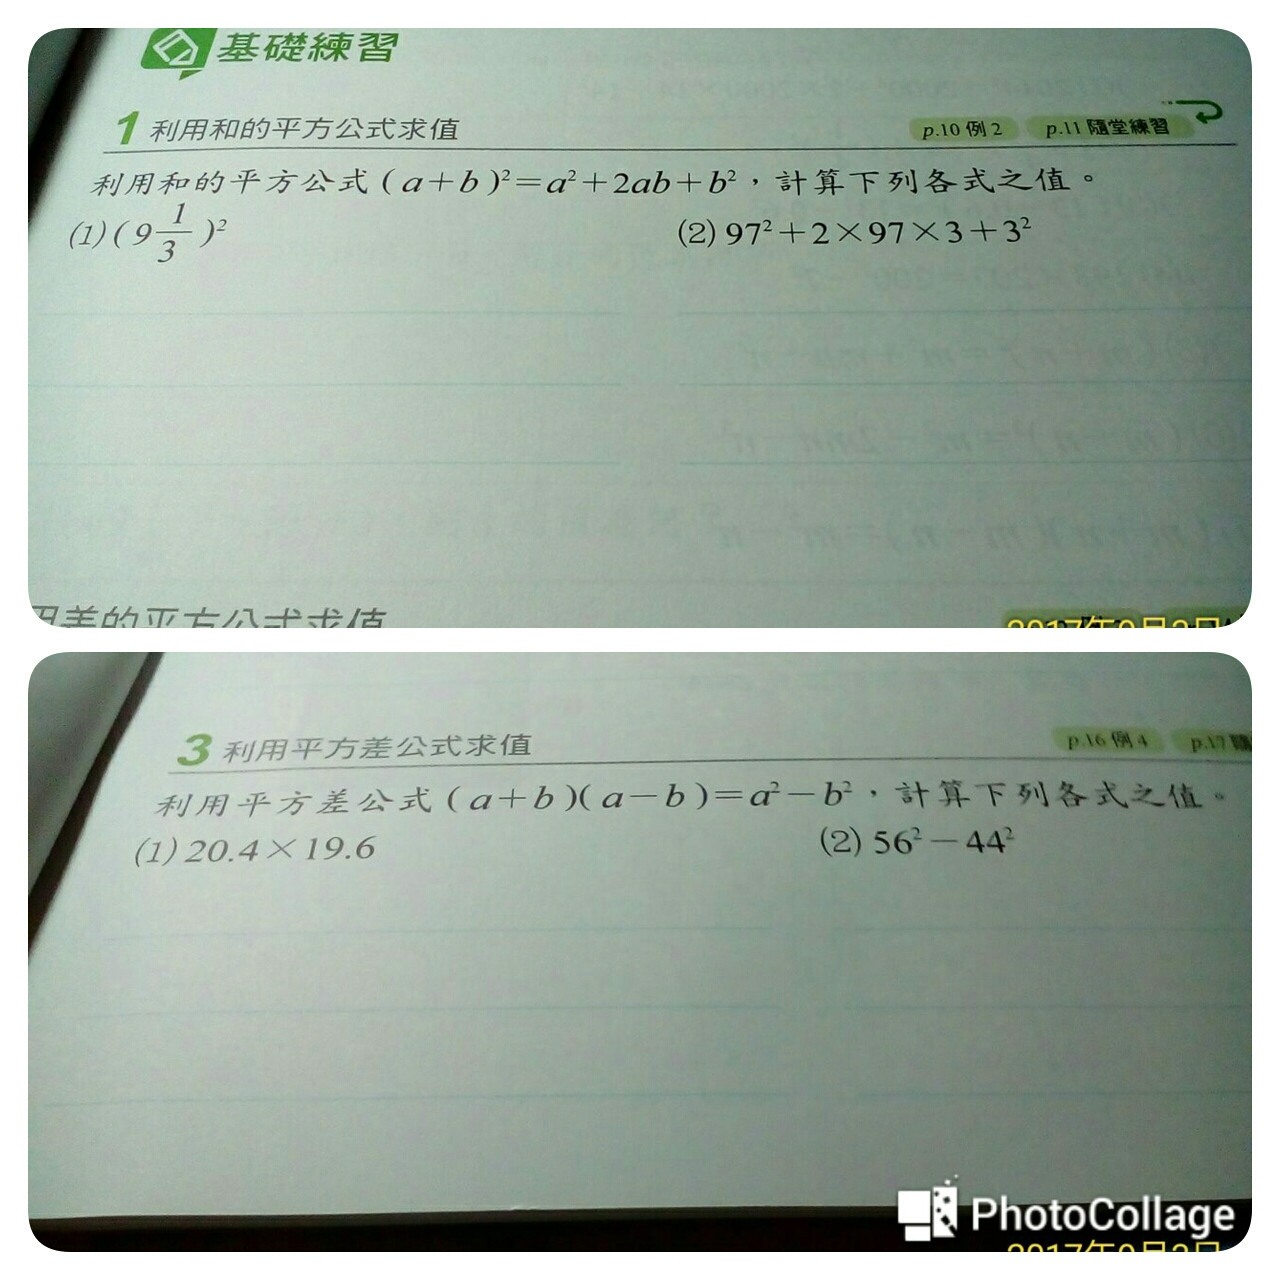 基礎練習
1 利用和的平方公式求值 p.10 例2 p.11 隨堂練習
利用和的平方公式(a+b)²=a²+2ab+b²,計算下列各式之值。
(1)(9 1/3)² (2)97²+2×97×3+3²
用差的平方公式求值
2017年9月3日
3 利用平方差公式求值 p.16 例4 p.17 隨
利用平方差公式(a+b)(a-b)=a²-b²,計算下列各式之值。
(1)20.4×19.6 (2)56²-44²
PhotoCollage
2017年9月3日